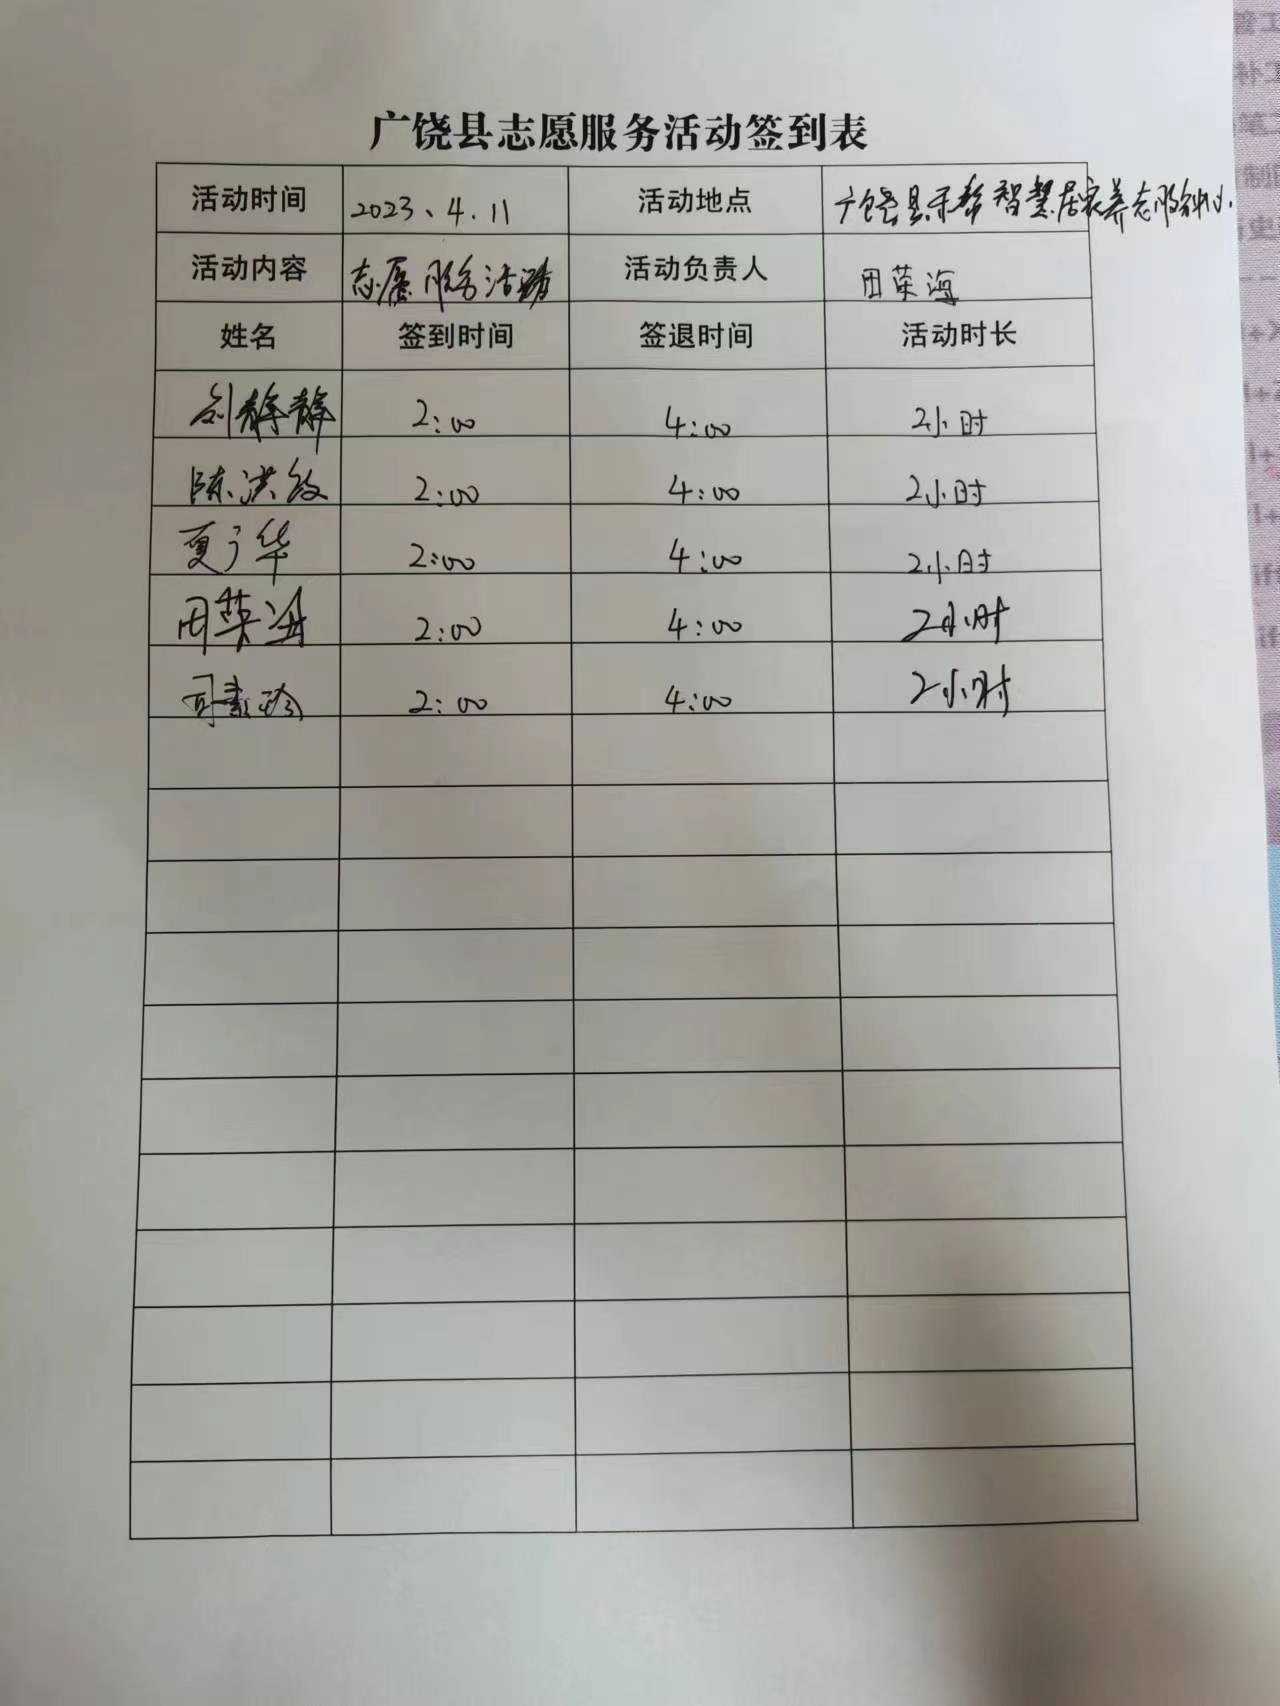 广饶县志愿服务活动签到表
活动时间 2023、4.11 活动地点 广饶县 智慧居家养老服务中心
活动内容 志愿服务活动 活动负责人 田荣海
姓名 签到时间 签退时间 活动时长
刘静静 2:00 4:00 2小时
陈洪 2:00 4:00 2小时
夏广华 2:00 4:00 2小时
田荣海 2:00 4:00 2小时
司素珍 2:00 4:00 2小时